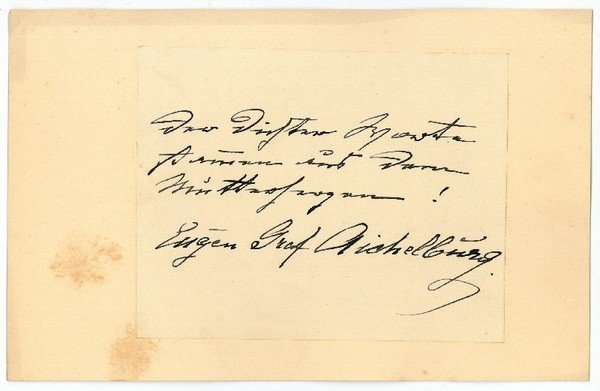 Der Dichter Worte
stammen aus dem
Mutterherzen!
Eugen Graf Aichelburg.